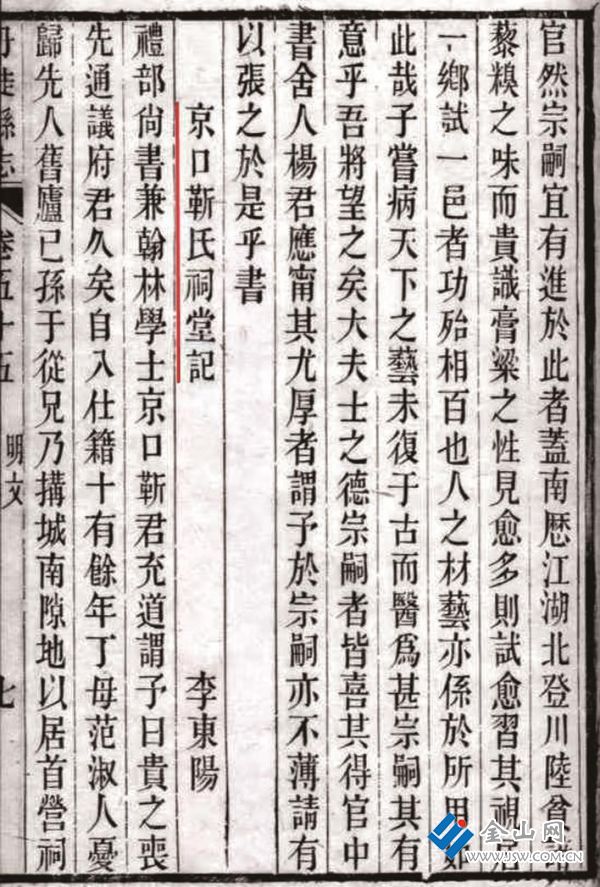 官然宗嗣宜有進於此者蓋南歷江湖北登川陸飫
藜糗之味而貴識膏粱之性見愈多則試愈習其視居
一鄉試一邑者功殆相百也人之材藝亦係於所用如
此哉子嘗病天下之藝未復于古而醫為甚宗嗣其有
意乎吾將望之矣大夫士之德宗嗣者皆喜其得官中
書舍人楊君應甯其尤厚者謂予於宗嗣亦不薄請有
以張之於是乎書
京口靳氏祠堂記 李東陽
禮部尚書兼翰林學士京口靳君充道謂予曰貴之喪
先通議府君久矣自入仕籍十有餘年丁母范淑人憂
歸先人舊廬已孫于從兄乃搆城南隙地以居首營祠
丹徒縣志 卷五十五 明文 七
金山网
www.jsw.com.cn